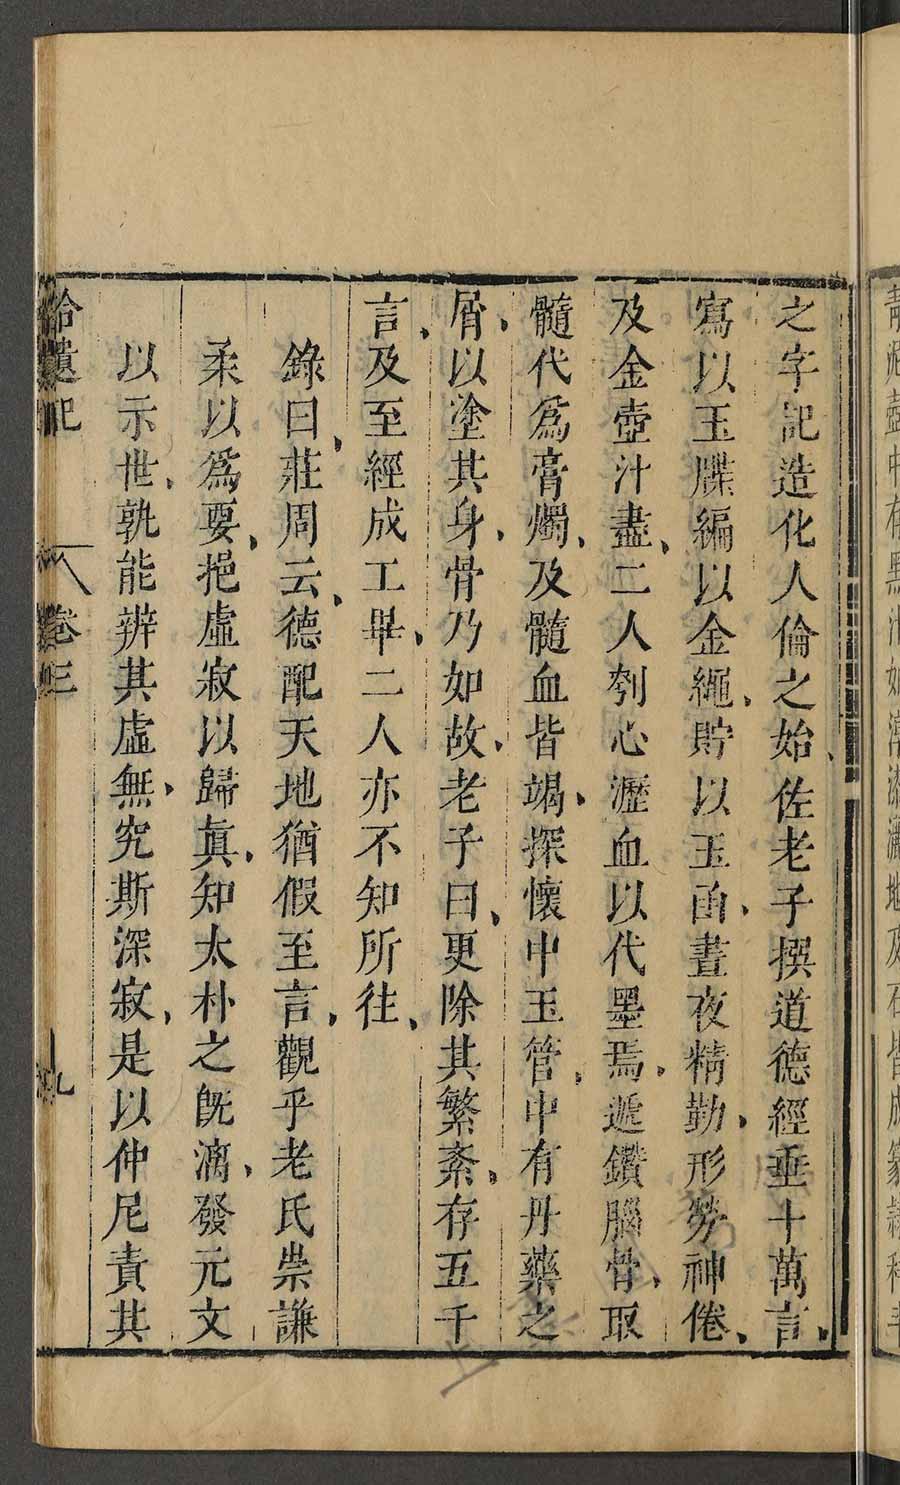 之字記造化人倫之始、佐老子撰道德經垂十萬言、
寫以玉牒編以金繩、貯以玉函、晝夜精勤、形勞神倦、
及金壺汁盡、二人刳心瀝血以代墨焉、遞鑽腦骨、取
髓代爲膏燭、及髓血皆竭、探懷中玉管、中有丹藥之
屑、以塗其身、骨乃如故、老子曰、更除其繁紊、存五千
言、及至經成工畢、二人亦不知所往、
錄曰、莊周云、德配天地猶假至言、觀乎老氏崇謙
柔以爲要、挹虛寂以歸眞、知太朴之旣漓、發元文
以示世、孰能辨其虛無、究斯深寂、是以仲尼責其
拾遺記
卷三
九